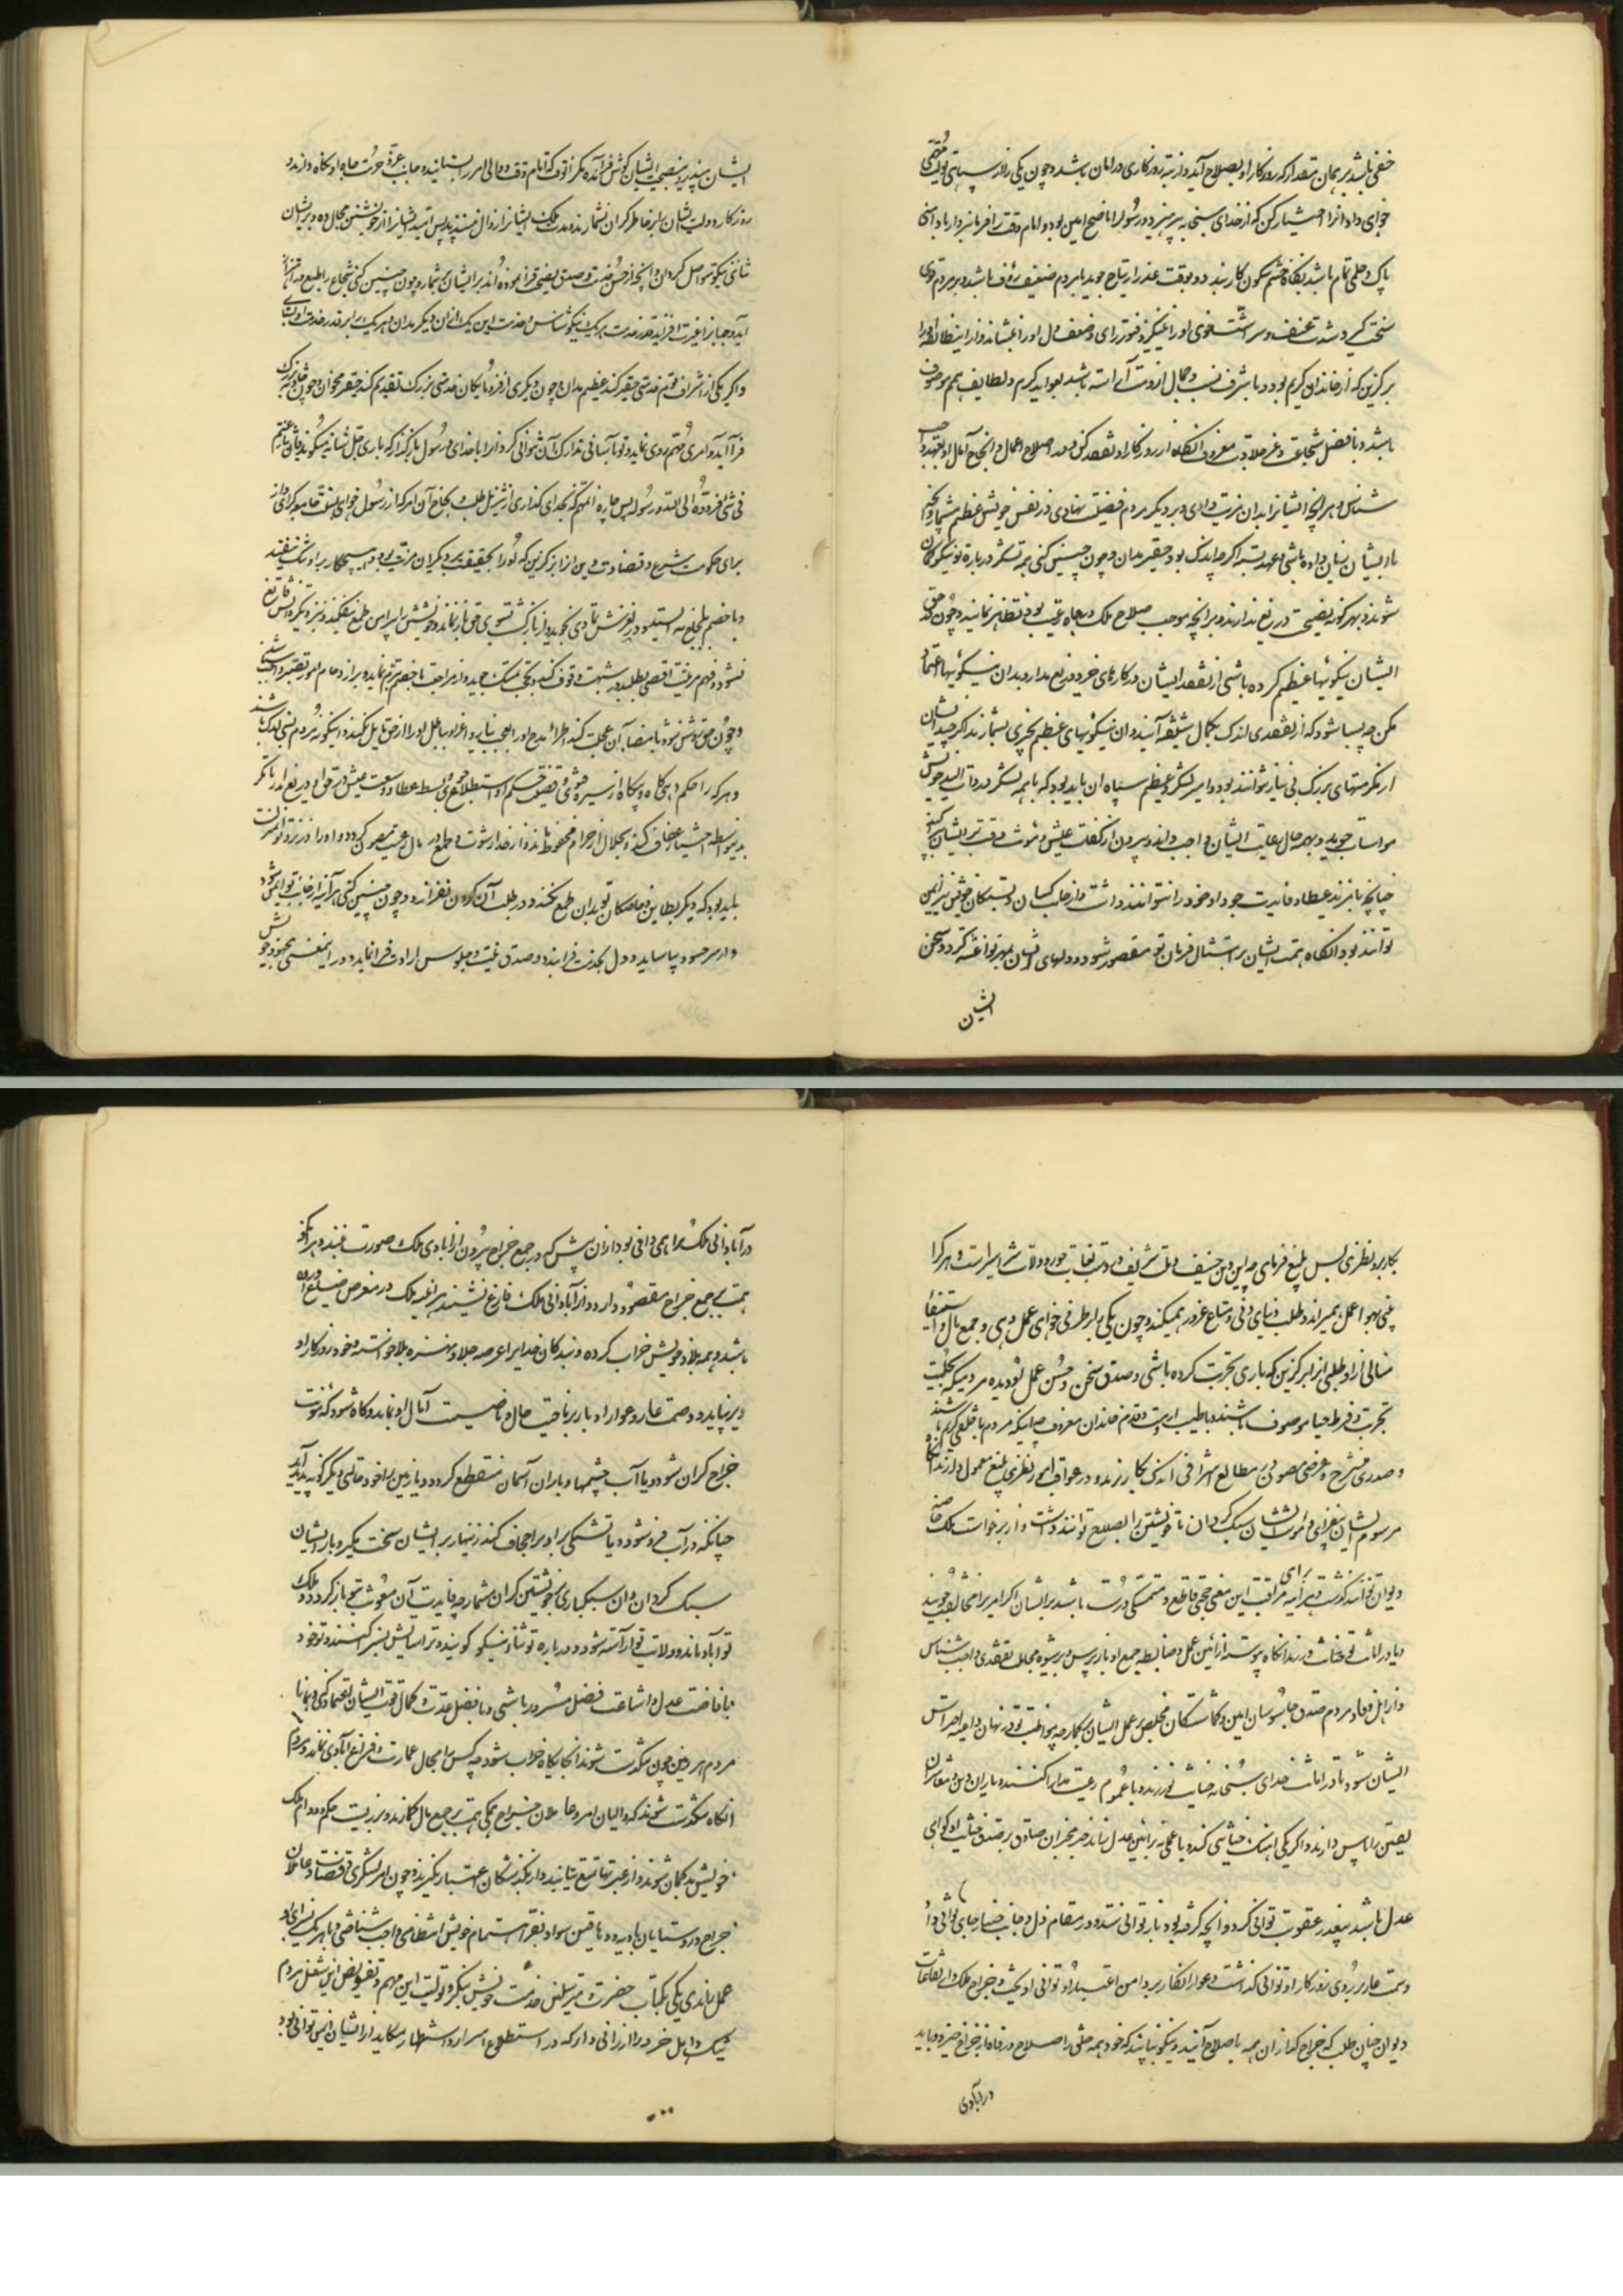 خفی باشد بر همان مقدار که روزکار او بصلاح آید و از تبه روزکاری در امان باشد و چون یکی را از سپاهی تولیت
خواهی داد آنرا اختیار کن که از خدای سبحانه بپرهیزد و رسول را ناصح امین بود و امام وقت را فرمانبردار با دامنی
پاک و حلمی تمام باشد بکاه خشم سکون کار بندد و بوقت عذر ارتیاح جوید با مردم ضعیف رؤف باشد و بر مردم قوی
سخت گیر و شدت عنف و سر او را نینگیزد و فتور رای و ضعف دل او را ننشاند و از این طائفه او را
برگزین که از خاندان کریم بود و با شرف نسب و جمال ارومت آراسته باشد بعواید کرم و لطایف همم موصوف
باشد و با فضل شجاعت و فر جلادت معروف آنکاه از روزکار او تفقد کن و در اصلاح اعمال و انجاح آمال او تعهد واجب
شناس و هر آنچه ایشانرا بدان مزیت دادی و بر دیگر مردم فضیلت نهادی در نفس خویش عظیم مشمار و آنچه
با ایشان زبان داده باشی و عهد بسته اگر چه اندک بود حقیر مدان و چون چنین کنی همه لشکر درباره تو نیکو گمان
شوند و بهر گونه نصیحتی دریغ ندارند و بر آنچه موجب صلاح ملک و رفاه رعیت بود تظاهر نمایند و چون حق
ایشان نیکوئیها عظیم کرده باشی از تفقد ایشان در کارهای خرد دریغ مدار و بدان نیکوئیها اعتماد
مکن چه بسیا شود که از تفقدی اندک بکمال شیفته آیند و آن نیکوئیهای عظیم بچیزی نشمارند اگر چه ایشان
از مکرمتهای بزرگ بی نیاز نتوانند بود و امیر لشکر و عظیم سپاه آن باید بود که با همه لشکر در ذات الید خویش
مواسات جوید و بهمه حال رعایت ایشان واجب داند و بیرون از کفلت عیش و مئونت وقت بر ایشان
چنانچه با فرزند عیطا و فایدت جود او خود را نتوانند داشت و از جانب کسان و بستگان خویش نیز ایمن
توانند بود آنکاه همت ایشان بر امتثال فرمان تو مقصور شود و دلهای ایشان بمهر تو آغشته کردد و سخن
ایشان
ایشان بپذیرد و نصیحت ایشان گوش فرا آمده مکر آنوقت که امام وقت و والی امر را بستایند و جانب عزت و حرمت جاه او نکاه دارند و
روزکار دولت ایشان بر خاطر گران نشمارند و مدت ملک ایشانرا زوال نپسندند پس امید ایشانرا از خویشتن مجال ده و بر ایشان
ثنائی نیکو متواصل کردان و آنچه از حسن خدمت و صدق نصیحت نموده‌اند بر ایشان بر شمار و چون چنین کنی شجاع را طبع در اهتزاز
آید و جبانرا غیرت افزاید و قدر خدمت هر یک نیکو شناس و خدمت این یک از آن دیگر مدان و هر یک را برابر قدر خدمت او بستای
و اگر یکی از اشراف قوم خدمتی حقیر کند عظیم مدان و چون دیگری از فرومایگان خدمتی بزرگ تقدیم کند حقیر مخوان و چون حادثه بزرگ
فرا آید و امری مهم روی نماید و تو بآسانی تدارک آن نتوانی کرد آنرا با خدای و رسول بازگذار که باری جل شانه میگوید فان تنازعتم
فی شیٔ فردوه الی الله و رسوله پس چاره آن مهم که بخدای گذاری از تنزیل طلب و نجاح آن امر که از رسول خواهی بسنت جامعه گرای و از
برای حکومت شرع و قضاوت دین آنرا برگزین که او را بحقیقت بر دیگران مزیت بود و هیچکار بر او تنگ نیفتد
و با خصم بلجاج نه ایستد و در لغزش تمادی نجوید و از بازگشت بسوی حق باز نماند و نفس خویش را بر اساس طمع نیفکند و نیز دیگر
نشود و فهم مرفت اقصی بطلبد و در شبهت وقوف کند و بحجت تمسک جوید و از مراجعت با خصم تبرم ننماید و بر ازدحام امور تصبر واجب شناسد
و چون حق روشن شود بامضاء آن عجلت کند اطرا و مدح او را بعجب نیارد و اغراء بباطل او را از حق مایل نکند و اینگونه مردم بسی اندک باشند
و هر که را حکم دهی گاه و بیگاه از سیره خفی و تحقیق حکم او استطلاع جوی و بسط عطا و وسعت عیش در حق او دریغ مدار تا مکر
بدینواسطه اختیار عفاف کند و بحلال از حرام محفوظ ماند و از اخذ رشوت و طمع در مال رعیت مصون گردد و او را در نزد تو منزلت
بلید بود که دیگر بطاین و خاصگان تو بدان طمع نکنند و در طلب آن گردن نفرازند و چون چنین کنی هر آینه از خیانت تو ایمن شود
و از سر حسود بیاساید و دل بخدمت فرا بندد و صدق نیت و خلوس ارادت فرا نماید و در اینمعنی بجهد خویش
بکار برد و نظری بس بلیغ فرمای چه این دین حنیف و ملت شریف دست بدست تغلب جور و ولات شر اسیر است و هر کرا
بینی بهوا عمل بمیراند و طلب دنیای دنی و متاع غرور همیکند و چون یکی را بر طرفی خواهی عمل دهی و جمع مال و استیفاء
منالی از او طلبی آنرا برگزین که باری تجربت کرده باشی و صدق سخن و حسن عمل او دیده مردمیکه بحلیت
تجربت و فرط حیا موصوف باشند و با طیب ارومت و قدم خاندان معروف چه اینگونه مردم با خلقی کریم باشند
و صدری منشرح و عرضی مصون بر مطالع اشراف اندک بکار برند و در عواقب امور نظری بلیغ معمول دارند آنکاه
مرسوم ایشان بفزای و امور ایشان سبک کردان تا خویشتن را بصلاح توانند داشت و از برخواست ملک خاصه
برای
دیوان توانند گذشت و هر آینه مراقبت این معنی حجتی قاطع و متمسکی درست باشد بر ایشان اگر امر ترا مخالفت جویند
و یا در امانت تو خیانت ورزند آنکاه پیوسته از آئین عمل و ضابطه جمع او بازپرس و بر شیوه معاملت تفقدی واجب شناس
و از اهل وفا و مردم صدق جاسوسان امین و گماشتگان مخلص بر عمل ایشان بگمار چه مواظبت تو در نهان داعیه احتراس
ایشان شود تا در امانت خدای سبحانه خیانت نورزند و با عموم رعیت مدارا کنند و یاران دین و معاشران
یقین را پاس دارند و اگر یکی آهنک خیانتی کند و یا عمل نه بر آئین عدل نماید خبر مخبران صادق بر صدق خیانت او گواهی
عدل باشد بیعذر عقوبت توانی کرد و آنچه گرفته بود باز توانی ستد و در مقام ذل و جانب خسار جای توانی داد
و سمت عار بر روی روزکار او توانی گذاشت و عوار انکار بر دامن اعتبار او توانی آویخت و خراج ملک و ارتفاعات
دیوان چنان طلب که خراج گذاران همه باصلاح آیند و نیکو نپایند که خود همه خلق را صلاح و رفاه از خراج خیزد و باید
در آبادی
در آبادانی ملک ترا همی وافی بود از آن بیش که در جمع خراج بیرون از آبادی ملک صورت نبندد و هر آنکو
همت بر جمع خراج مقصور دارد و از آبادانی ملک فارغ نشیند هر آینه ملک در معرض ضیاع آورده
باشد و همه بلاد خویش خراب کرده و بندگان خدایرا عرصه جلا و نهزه بلا خواسته و خود روزکار او
دیر نپاید و وصمت عار و عوار ادبار بر ناصیت حال و ناصیت آمال او نماید و گاه شود که مئونت
خراج گران شود و یا آب چشمها و باران آسمان منقطع گردد و یا زمین را خود حالتی دیگرگونه پدید آید
چنانکه در آب فرو شود و یا تشنگی بر او برا جحاف کند زنهار بر ایشان سخت مگیر و بار ایشان
سبک کردان و آن سبکباری بر خویشتن گران مشمار چه فایدت آن معونت بتو باز گردد و ملک
تو آباد ماند و ولایت تو آراسته شود و درباره تو ثنای نیکو گویند و ترا ستایش بسزا کنند و تو خود
بافاضت عدل و اشاعت فضل مسرور باشی و با فضل عدت و کمال قوت ایشان اعتماد کنی و همانا
مردم هر زمین چون تنگدست شوند آنجایگاه خراب شود چه کس را مجال عمارت و فراغ آبادی نماند و مردم
آنکاه تنگدست شوند که والیان امر و عاملان خراج همگی همت بر جمع مال گمارند و بر زیست حکم و دوام ملک
خویش بدگمان شوند و از عبرتها تمتع نیابند و از گذشتگان اعتبار نگیرند و چون امر لشکری و قضات و عاملان
خراج و روستایان بادیه و دهاقین سواد بقدر اهتمام خویش انتظامی واجب شناختی و با هر یک بسزای او
عمل راندی یکی بکتاب حضرت و مترسلان خدمت خویش بنگر و تولیت این مهم و تفویض این شغل بمردم
نیک و اهل خرد ارزانی دار که در استطلاع اسرار و استظهار مکاید از ایشان ایمن توانی بود